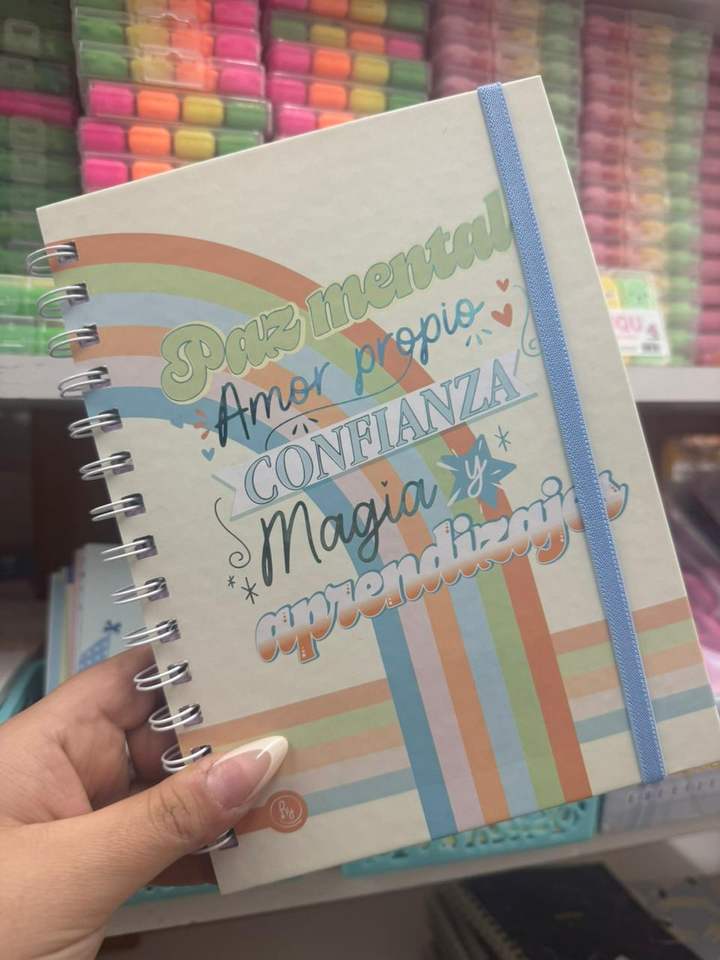 Paz mental
Amor propio
CONFIANZA
Magia y
aprendizajes